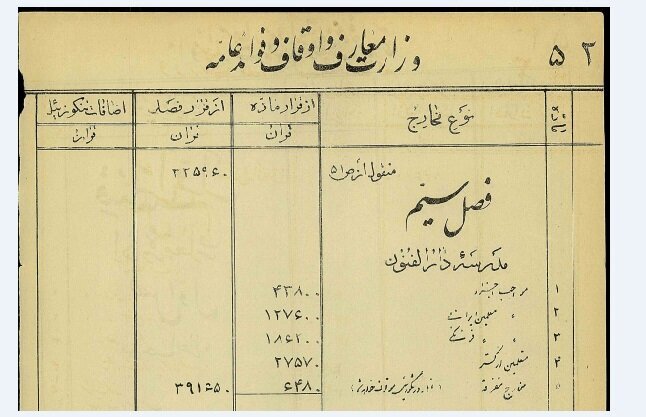 ۵۲
وزارت معارف و اوقاف و فوائد عامه
نوع مخارج از قرار ماده از قرار فصل
قران قران قران
منقول از ص ۵۱ ۲۲۵۹۶۰
فصل سیّم
مدرسهٔ دارالفنون
۱ مواجب اجزاء ۴۳۸۰۰
۲ " معلمین ایرانی ۱۲۷۶۰۰
۳ " " فرنگی ۱۸۶۲۰۰
۴ معلمین ارکستر ۲۷۵۷۰
۵ مخارج متفرقه ۶۴۸۰ ۳۹۱۶۵۰